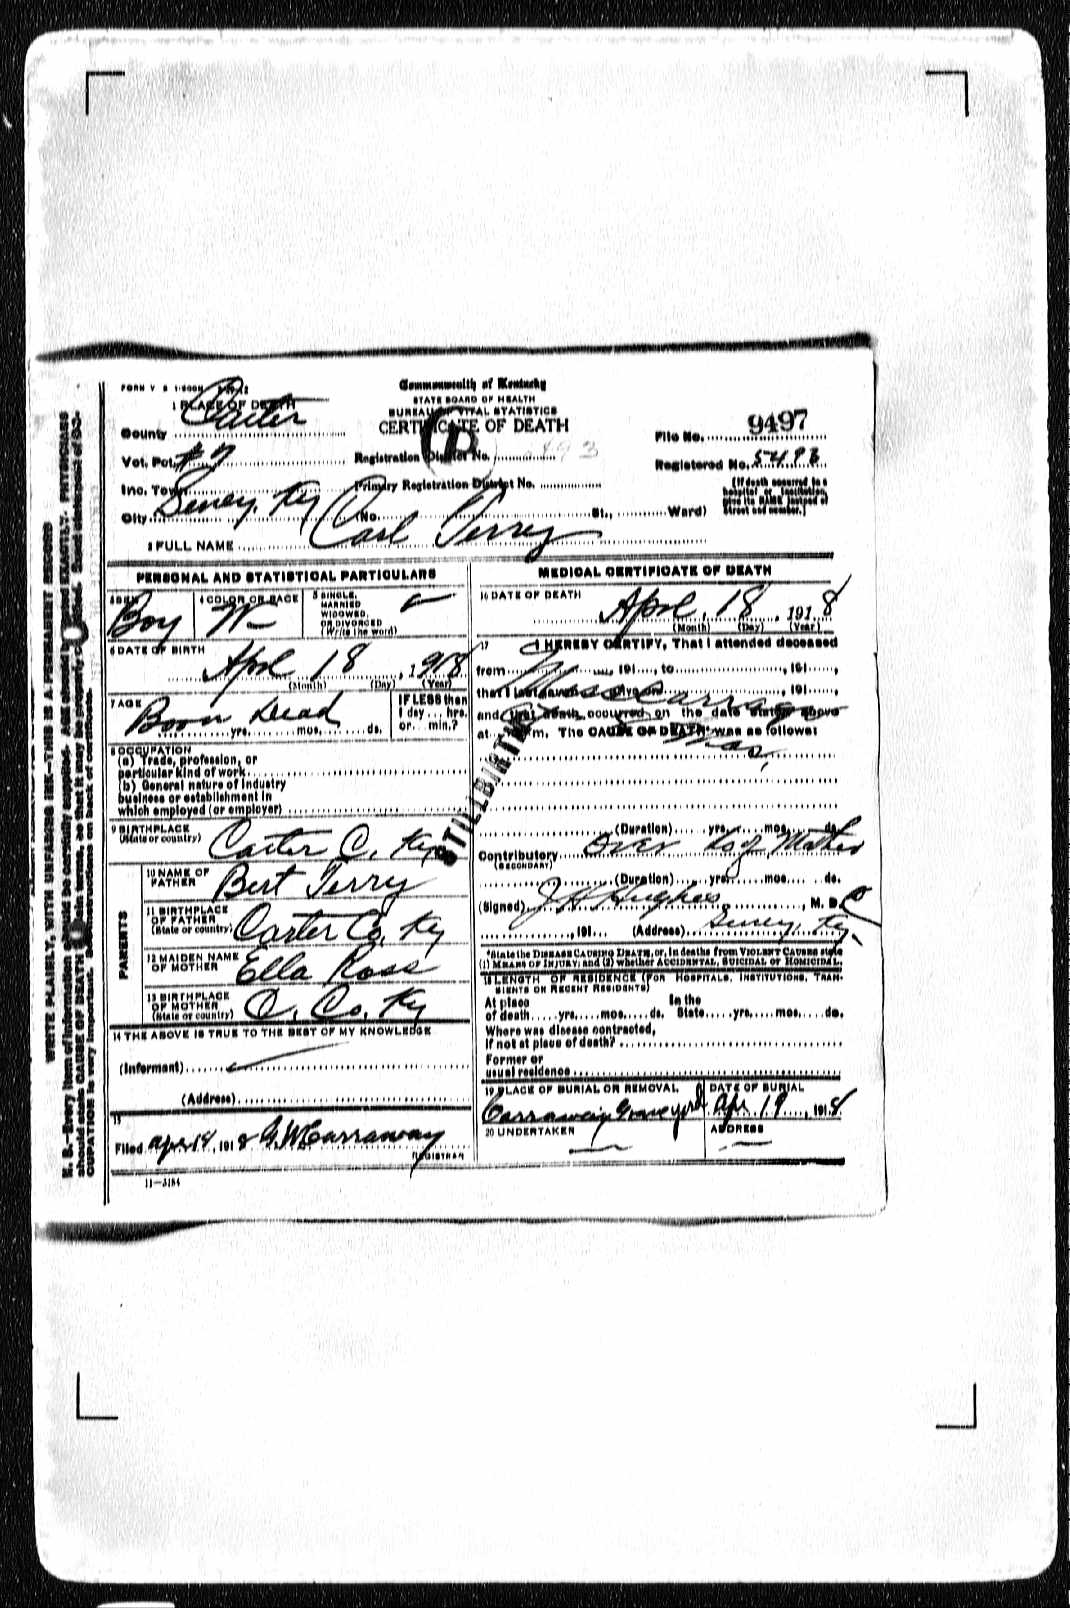 Commonwealth of Kentucky
STATE BOARD OF HEALTH
BUREAU OF VITAL STATISTICS
CERTIFICATE OF DEATH
1 PLACE OF DEATH
County Carter
File No. 9497
Vot. Pct. #7
Registration District No.
Registered No. 5493
Inc. Town
Primary Registration District No.
(If death occurred in a hospital or institution, give its NAME instead of street and number.)
City (No. St., Ward)
2 FULL NAME Carl Terry
PERSONAL AND STATISTICAL PARTICULARS
Boy
4 COLOR OR RACE W
5 SINGLE, MARRIED WIDOWED, OR DIVORCED (Write the word)
6 DATE OF BIRTH April 18, 1918
(Month) (Day) (Year)
7 AGE Born Dead
yrs. mos. ds.
IF LESS than 1 day ... hrs. or ... min.?
8 OCCUPATION
(a) Trade, profession, or
particular kind of work
(b) General nature of industry
business or establishment in
which employed (or employer)
9 BIRTHPLACE
(State or country) Carter C. Ky
10 NAME OF FATHER Bert Terry
PARENTS
11 BIRTHPLACE OF FATHER (State or country) Carter Co. Ky
12 MAIDEN NAME OF MOTHER Ella Ross
13 BIRTHPLACE OF MOTHER (State or country) C. Co. Ky
14 THE ABOVE IS TRUE TO THE BEST OF MY KNOWLEDGE
(Informant)
(Address)
15
Filed Apr 18, 1918 G.W. Carraway
REGISTRAR
11-3184
MEDICAL CERTIFICATE OF DEATH
16 DATE OF DEATH April 18, 1918
(Month) (Day) (Year)
17 I HEREBY CERTIFY, That I attended deceased
from , 191 , to , 191 ,
that I last saw alive on , 191 ,
and that death occurred on the date stated above
at m. The CAUSE OF DEATH* was as follows:
STILLBIRTH
(Duration) yrs. mos. ds.
Contributory Over Mother
(SECONDARY)
(Duration) yrs. mos. ds.
(Signed) J H Hughes, M. D.
, 191 (Address) Ky.
*State the DISEASE CAUSING DEATH, or, in deaths from VIOLENT CAUSES state
(1) MEANS OF INJURY; and (2) whether ACCIDENTAL, SUICIDAL or HOMICIDAL.
18 LENGTH OF RESIDENCE (FOR HOSPITALS, INSTITUTIONS, TRANSIENTS OR RECENT RESIDENTS)
At place of death yrs. mos. ds. In the State yrs. mos. ds.
Where was disease contracted,
if not at place of death?
Former or
usual residence
19 PLACE OF BURIAL OR REMOVAL
Graveyard
DATE OF BURIAL
Apr. 19, 1918
20 UNDERTAKER
ADDRESS
WRITE PLAINLY, WITH UNFADING INK—THIS IS A PERMANENT RECORD